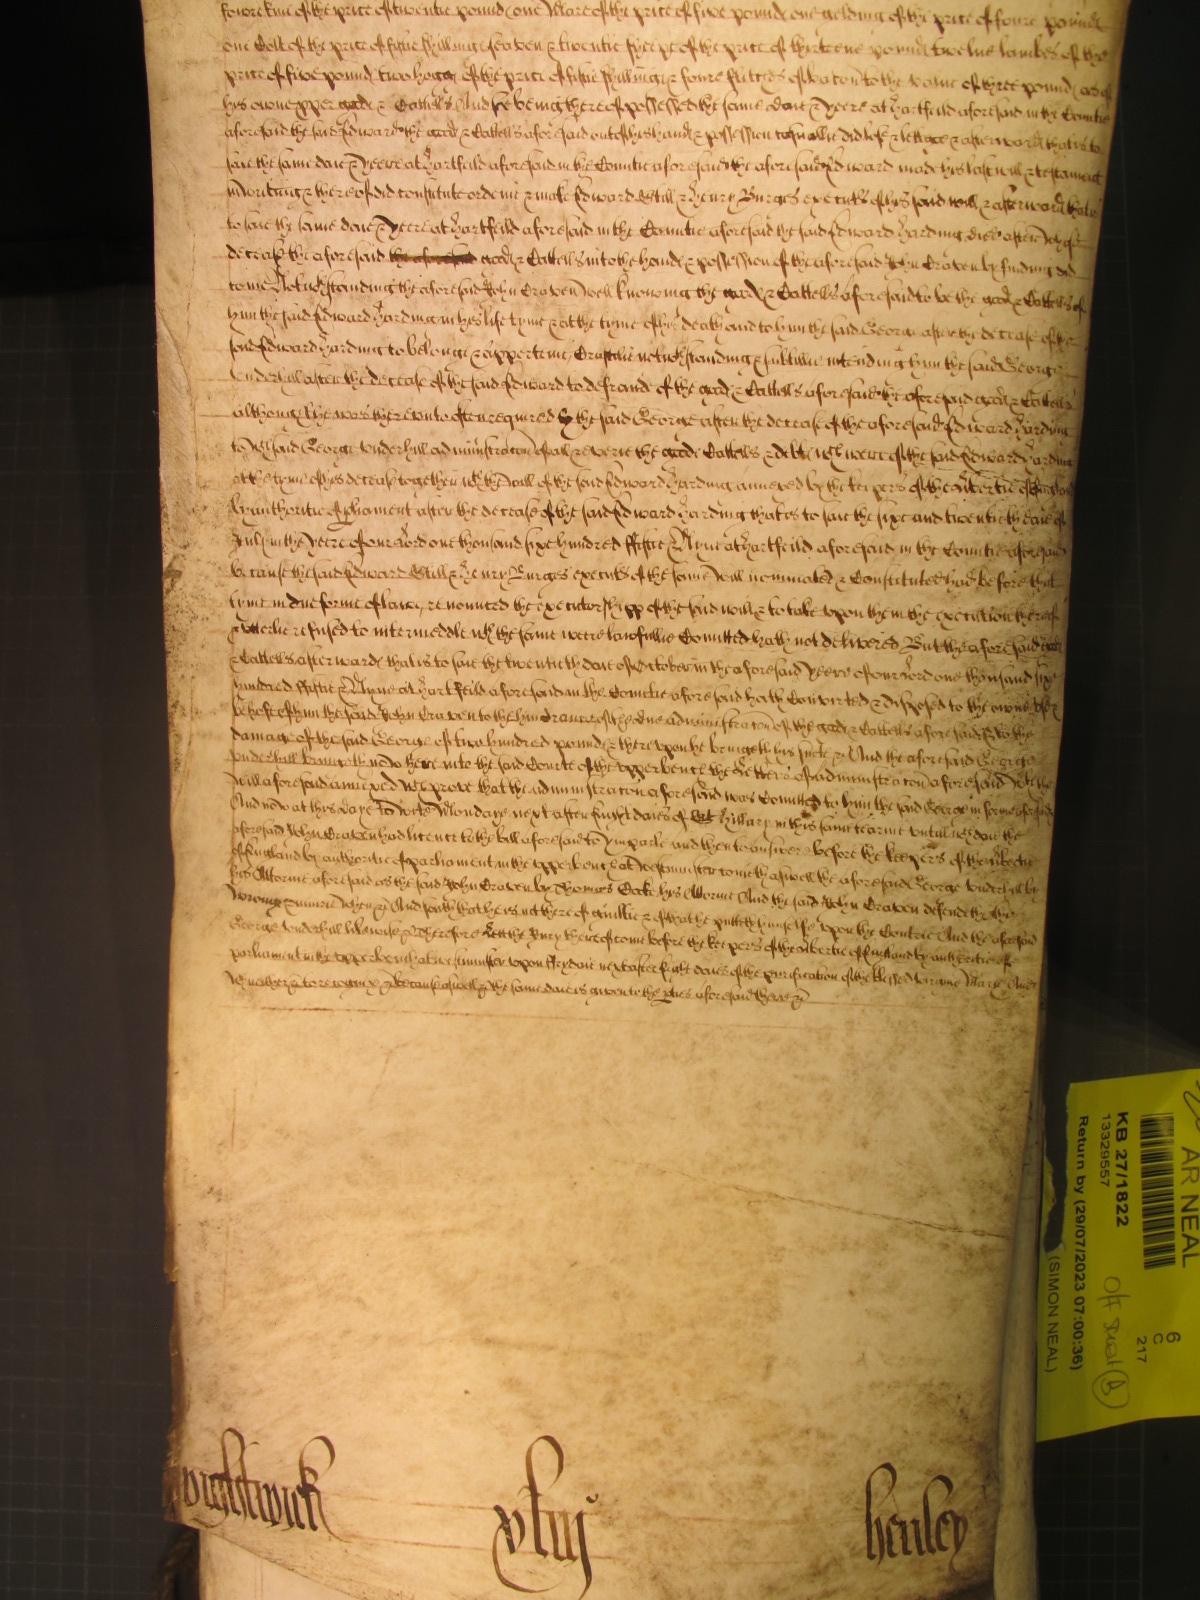 foure kine of the price of twentie pounds one Mare of the price of five pounds one gelding of the price of foure pounds
one Colt of the price of fiftie shillings seaven & twentie sheepe of the price of thirteene pounds twelve lambes of the
price of five pounds two hoggs of the price of fiftie shillings & foure flitches of bacon to the value of three pounds as of
his owne pper goods & Cattells And he being thereof possessed the same daie & yeere at hartfeild aforesaid in the Countie
aforesaid the said Edward the goods & Cattells aforesaid out of his hands & possession casuallie did lose & afterwards that is to
saie the same daie & yeere at hartfeild aforesaid in the Countie aforesaid the aforesaid Edward made his last will & testament
in writing & thereof did constitute ordeine & make Edward Still & henry Burges executrs of his said will & afterwards that is
to saie the same daie & yeere at hartfeild aforesaid in the Countie aforesaid the said Edward harding died after whose
decease the aforesaid goods & Cattells into the hands & possession of the aforesaid John Craven by finding did
come Notwthstanding the aforesaid John Craven well knowing the goods & Cattells aforesaid to be the goods & Cattells of
him the said Edward harding in his life tyme & at the tyme of his death and to him the said George after the decease of the
said Edward harding to belonge & apperteine Craftilie notwthstanding & subtillie intending him the said George
Underhill after the decease of the said Edward to defraude of the goods & Cattells aforesaid the aforesaid goods & Cattells
although he were thereunto often required by the said George after the decease of the aforesaid Edward harding
to wch said George Underhill administracon of all & everie the goods Cattells & debts wch were of the said Edward harding
at the tyme of his decease together wth the will of the said Edward harding annexed by the keepers of the libertie of England
by authoritie of parliament after the decease of the said Edward harding that is to saie the six and twentieth daie of
July in the yeere of our Lord one thousand six hundred fiftie & Nyne at hartfeild aforesaid in the Countie aforesaid
because the said Edward Still & henry Burges executrs of the same will nominated & Constituted had before that
tyme in due forme of lawe renounced the executorshipp of the said will & to take upon them the execution thereof
& utterlie refused to intermeddle wth the same were lawfullie Comitted hath not delivered But the aforesaid goods
& Cattells afterwards that is to saie the twentieth daie of October in the aforesaid yeere of our Lord one thousand six
hundred fiftie & Nyne at hartfeild aforesaid in the Countie aforesaid hath Converted & disposed to the owne use &
behofe of him the said John Craven to the hindrance of the due administracon of the goods & Cattells aforesaid & to the
damage of the said George of two hundred pounds & thereupon he bringeth his suite &c And the aforesaid George
Underhill bringeth now here into the said Courte of the upper bench the lettres of administracon aforesaid wth the
will aforesaid annexed wch prove that the administracon aforesaid was Comitted to him the said George in forme aforesaid
And now at this daye to witt Mondaye next after eight daies of St hillary in this same tearme untill wch daie the
aforesaid John Craven had licence to the bill aforesaid to imparle and then to answere before the keepers of the libertie
of England by authoritie of parliament in the upper bench at Westminster come aswell the aforesaid George Underhill by
his Attorne aforesaid as the said John Craven by Thomas Cocke his Attorne And the said John Craven defendeth the
wronge & iniurie when &c And saith that he is not thereof guiltie & of that he putteth himselfe upon the Contrie And the aforesaid
George Underhill likewise &c Therefore lett the Jury thereof come before the keepers of the libertie of England by authoritie of
parliament in the upper bench at westminster upon fryday next after eight daies of the purification of the blessed virgine Marie And
who neither &c to recognize &c because aswell &c the same daie is given to the pties aforesaid there &c
wightwick
xliiij
henley
AR NEAL
KB 27/1822
13329557
Return by (29/07/2023 07:00:36)
(SIMON NEAL)
6
C
217